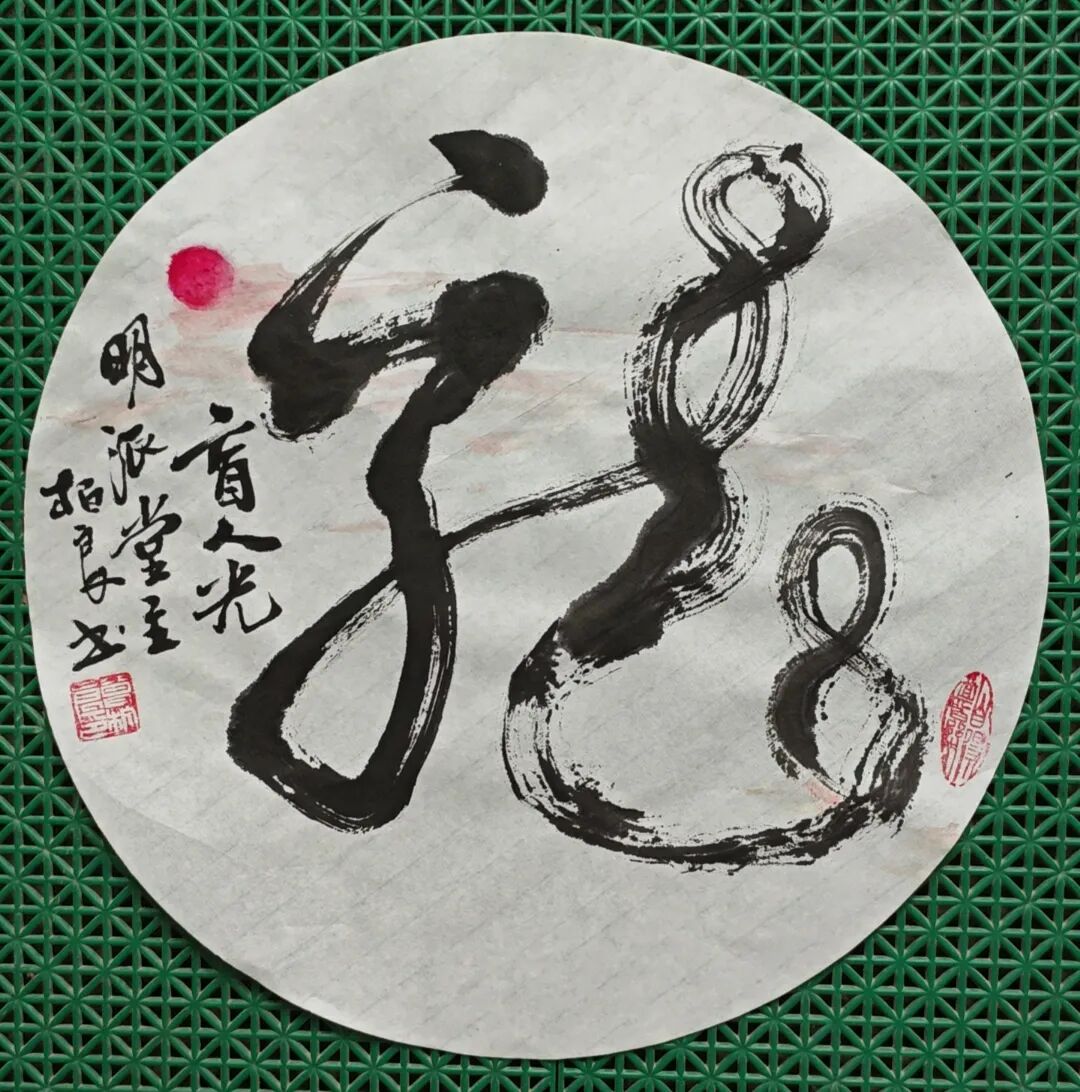 龍
盲人光
明派堂主
柏良书